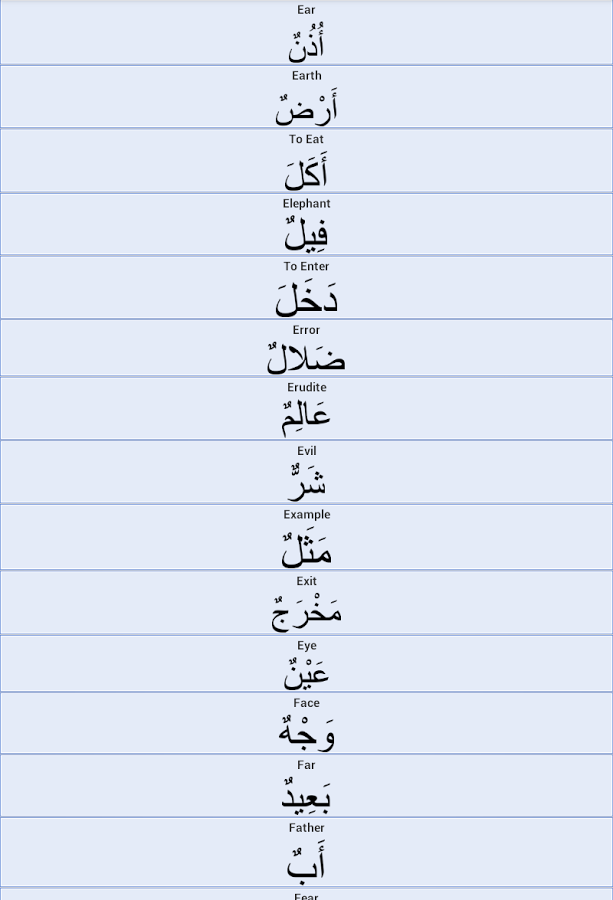 Ear
أُذُنٌ
Earth
أَرْضٌ
To Eat
أَكَلَ
Elephant
فِيلٌ
To Enter
دَخَلَ
Error
ضَلالٌ
Erudite
عَالِمٌ
Evil
شَرٌّ
Example
مَثَلٌ
Exit
مَخْرَجٌ
Eye
عَيْنٌ
Face
وَجْهٌ
Far
بَعِيدٌ
Father
أَبٌ
Fear